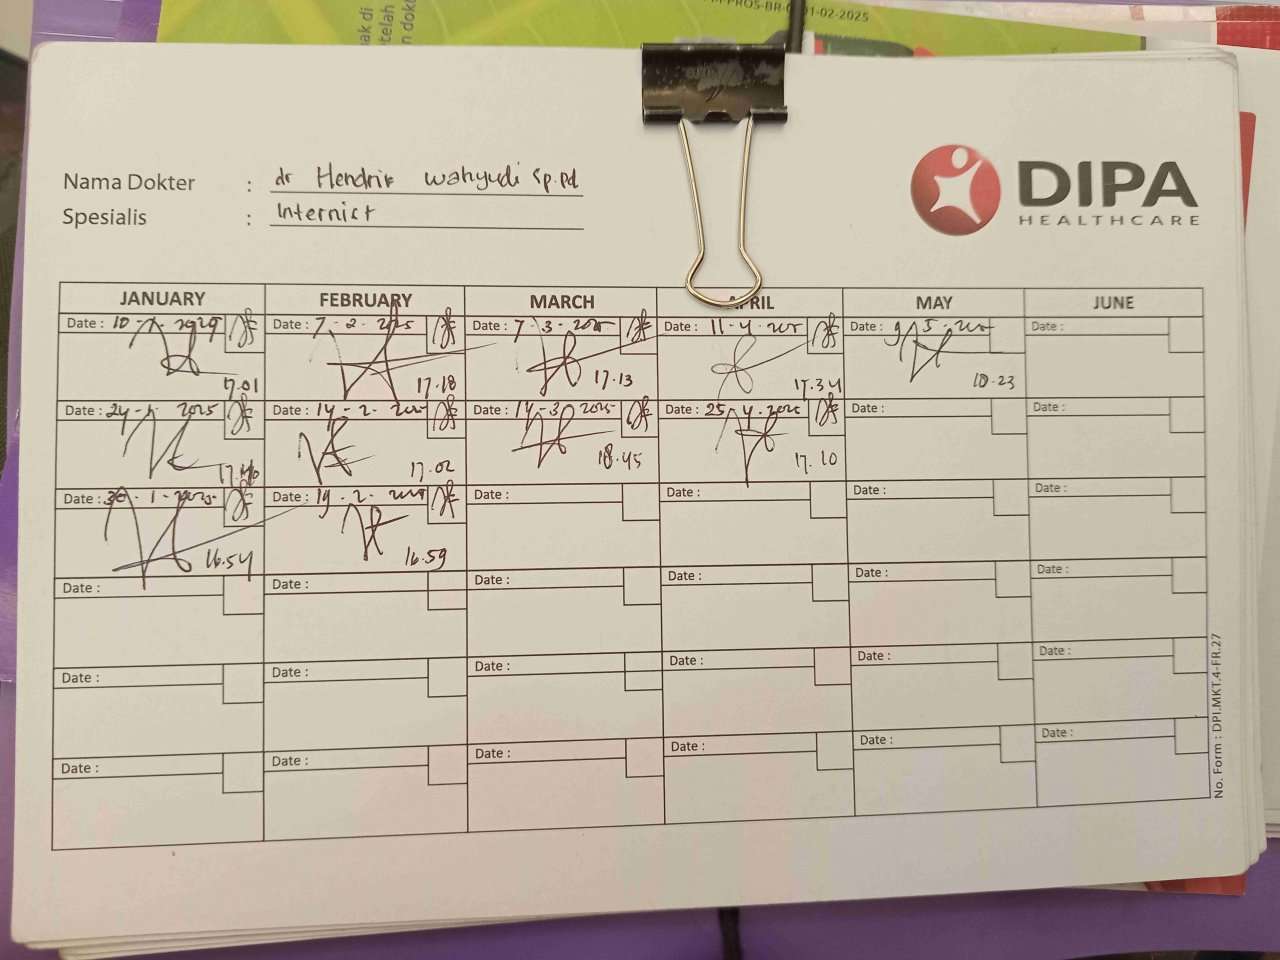 PROS-BR-0 01-02-2025
ak di
telah
n dokt
Nama Dokter : dr Hendrik Wahyudi Sp.Pd
Spesialis : Internist
DIPA
HEALTHCARE
JANUARY FEBRUARY MARCH APRIL MAY JUNE
Date : 10-1-2025 Date : 7-2-2025 Date : 7-3-2025 Date : 11-4-2025 Date : 9-5-2025 Date :
17.01 17.18 17.13 17.34 18.23
Date : 24-1-2025 Date : 14-2-2025 Date : 14-3-2025 Date : 25-4-2025 Date : Date :
17.40 17.02 18.45 17.10
Date : 30-1-2025 Date : 19-2-2025 Date : Date : Date : Date :
16.54 16.59
Date : Date : Date : Date : Date : Date :
Date : Date : Date : Date : Date : Date :
Date : Date : Date : Date : Date : Date :
No. Form : DPI.MKT.4-FR.27